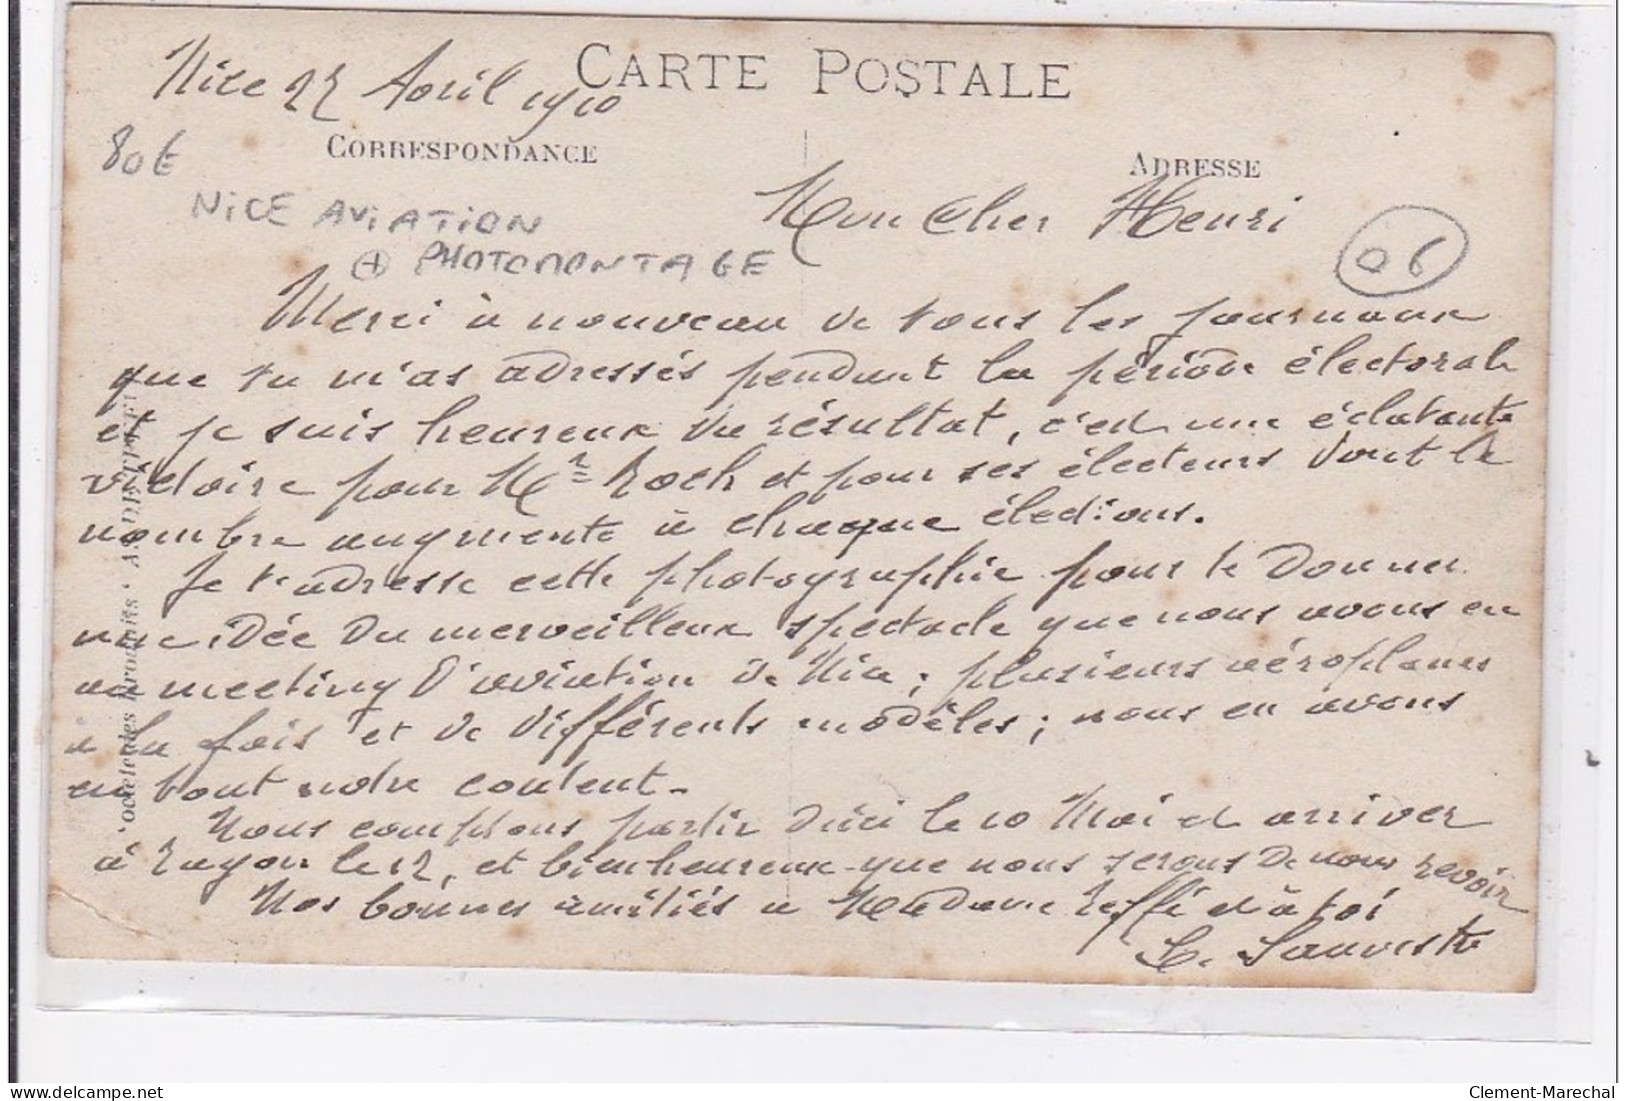 CARTE POSTALE
Nice 22 Avril 1910
CORRESPONDANCE
ADRESSE
80€
NICE AVIATION
+ PHOTOMONTAGE
06
Mon cher Henri
Merci à nouveau de tous les journaux
que tu m'as adressés pendant la période électorale
et je suis heureux du résultat, c'est une éclatante
victoire pour Mr Roch et pour ses électeurs dont le
nombre augmente à chaque élections.
Je t'adresse cette photographie pour te donner
une idée du merveilleux spectacle que nous avons eu
au meeting d'aviation de Nice ; plusieurs aéroplanes
à la fois et de différents modèles ; nous en avons
eu tout notre content.
Nous comptons partir d'ici le 10 Mai et arriver
à le 12, et bienheureux que nous serons de nous revoir
Nos bonnes amitiés à Madame et à toi
Sauvestre
Clement-Marechal